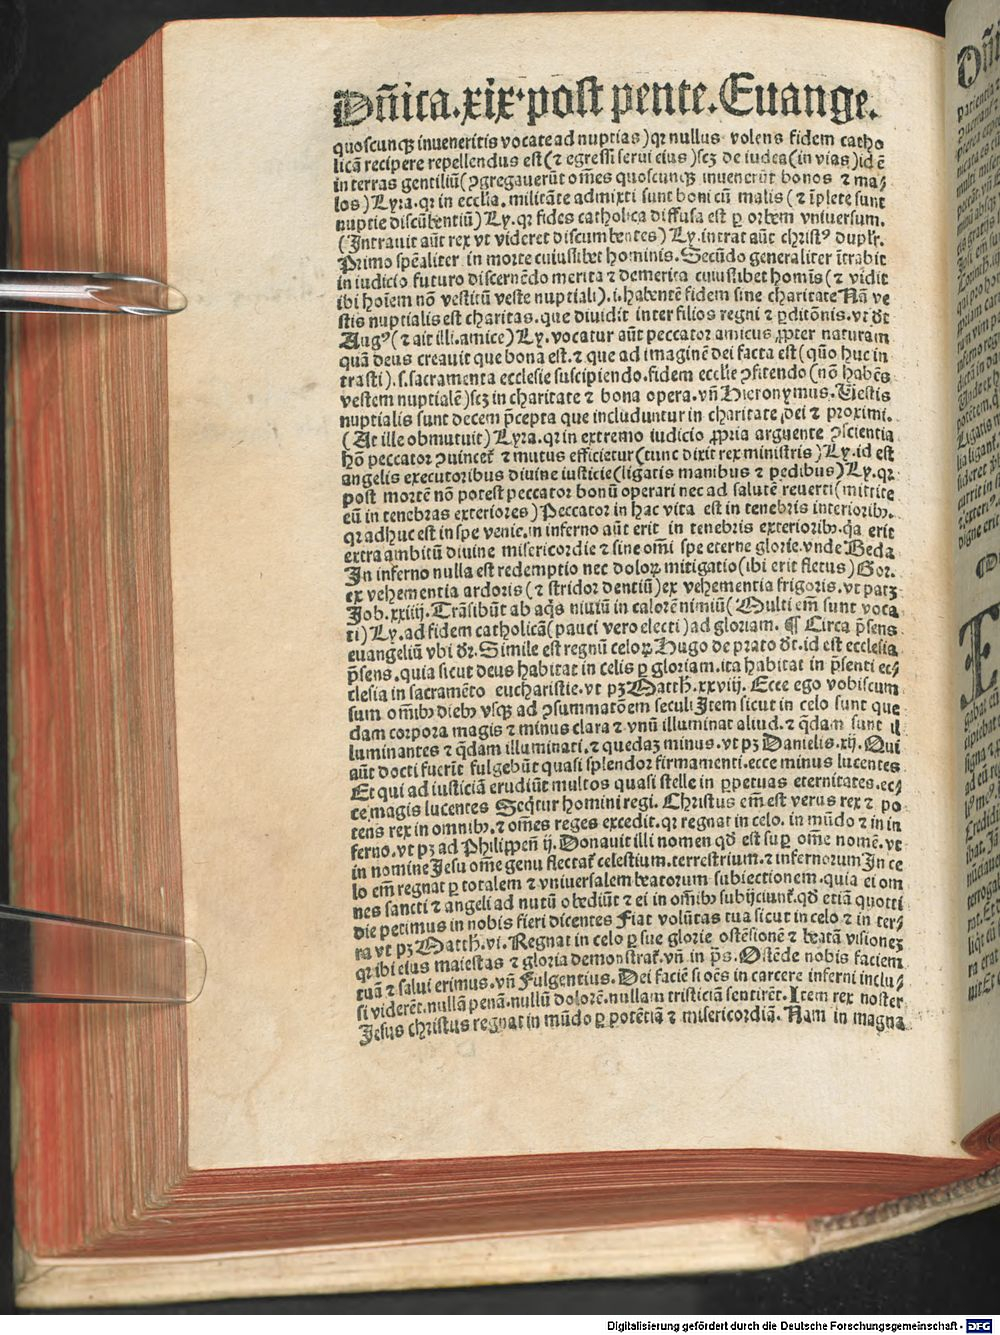 Dñica.xix.post pente.Euange.
quoscunqꝫ inueneritis vocate ad nuptias)qꝛ nullus volens fidem catho
licā recipere repellendus est(⁊ egressi serui eius)scꝫ de iudea(in vias)id ē
in terras gentiliū(ꝯgregauerūt om̄es quoscunqꝫ inuenerūt bonos ⁊ ma⸗
los)Lyra.qꝛ in ecclia.militāte admixti sunt boni cū malis(⁊ īplete sunt
nuptie discūbentiū)Ly.qꝛ fides catholica diffusa est ꝑ orbem vniuersum.
(Intrauit aūt rex vt videret discumbentes)Ly.intrat aūt christꝰ duplr̄.
Primo spēaliter in morte cuiuslibet hominis.Secūdo generaliter ītrabit
in iudicio futuro discernēdo merita ⁊ demerita cuiuslibet homīs(⁊ vidit
ibi hoīem nō vestitū veste nuptiali).i.habentē fidem sine charitate Nā ve
stis nuptialis est charitas.que diuidit inter filios regni ⁊ ꝑditōnis.vt dt̄
Augꝰ(⁊ ait illi.amice)Ly.vocatur aūt peccator amicus ꝓpter naturam
quā deus creauit que bona est.⁊ que ad imaginē dei facta est(quō huc in
trasti).s.sacramenta ecclesie suscipiendo.fidem ecclie ꝯfitendo(nō habēs
vestem nuptialē)scꝫ in charitate ⁊ bona opera.vñ Hieronymus.Uestis
nuptialis sunt decem p̄cepta que includuntur in charitate dei ⁊ proximi.
(At ille obmutuit)Lyra.qꝛ in extremo iudicio ꝓpria arguente ꝯscientia
hō peccator ꝯuincet᷑ ⁊ mutus efficietur(tunc dixit rex ministris)Ly.id est
angelis executoribus diuine iusticie(ligatis manibus ⁊ pedibus)Ly.qꝛ
post mortē nō potest peccator bonū operari nec ad salutē reuerti(mittite
eū in tenebras exteriores)Peccator in hac vita est in tenebris interioribꝰ.
qꝛ adhuc est in spe venie.in inferno aūt erit in tenebris exterioribꝰ.q̄a erit
extra ambitū diuine misericordie ⁊ sine om̄i spe eterne glorie.vnde Beda
In inferno nulla est redemptio nec doloꝝ mitigatio(ibi erit fletus)Gor.
ex vehementia ardoris(⁊ stridor dentiū)ex vehementia frigoris.vt patꝫ
Job.xxiiij.Trāsibūt ab aq̄s niuiū in calorē nimiū(Multi em̄ sunt voca
ti)Ly.ad fidem catholicā(pauci vero electi)ad gloriam. ¶ Circa p̄sens
euangeliū vbi dr̄.Simile est regnū celoꝝ Hugo de prato dt̄.id est ecclesia
p̄sens.quia sicut deus habitat in celis ꝑ gloriam.ita habitat in p̄senti ec⸗
clesia in sacramēto eucharistie.vt pꝫ Matth̄.xxviij. Ecce ego vobiscum
sum om̄ibꝰ diebꝰ vsqꝫ ad ꝯsummatōem seculi Item sicut in celo sunt que
dam corpora magis ⁊ minus clara ⁊ vnū illuminat aliud.⁊ q̄dam sunt il
luminantes ⁊ q̄dam illuminati.⁊ quedaꝫ minus.vt pꝫ Danielis.xij.Qui
aūt docti fuerīt fulgebūt quasi splendor firmamenti.ecce minus lucentes
Et qui ad iusticiā erudiūt multos quasi stelle in ꝑpetuas eternitates.ec⸗
ce magis lucentes Seq̄tur homini regi. Christus em̄ est verus rex ⁊ po
tens rex in omnibꝰ.⁊ om̄es reges excedit.qꝛ regnat in celo.in mūdo ⁊ in in
ferno.vt pꝫ ad Philippeñ ij.Donauit illi nomen qd̄ est suꝑ om̄e nomē.vt
in nomine Jesu om̄e genu flectat᷑ celestium.terrestrium.⁊ infernorum In ce
lo em̄ regnat ꝑ totalem ⁊ vniuersalem beatorum subiectionem.quia ei om
nes sancti ⁊ angeli ad nutū obediūt ⁊ ei in om̄ibꝰ subijciunt᷑.qd̄ etiā quotti
die petimus in nobis fieri dicentes Fiat volūtas tua sicut in celo ⁊ in ter⸗
ra vt pꝫ Matth̄.vi.Regnat in celo ꝑ sue glorie ostēsionē ⁊ beatā visioneꝫ
qꝛ ibi eius maiestas ⁊ gloria demonstrat᷑.vñ in p̄s.Ostēde nobis faciem
tuā ⁊ salui erimus.vñ Fulgentius.Dei faciē si oēs in carcere inferni inclu⸗
si viderēt.nullā penā.nullū dolorē.nullam tristiciā sentirēt.Item rex noster
Jesus christus regnat in mūdo ꝑ potētiā ⁊ misericordiā. Nam in magna
Digitalisierung gefördert durch die Deutsche Forschungsgemeinschaft - DFG